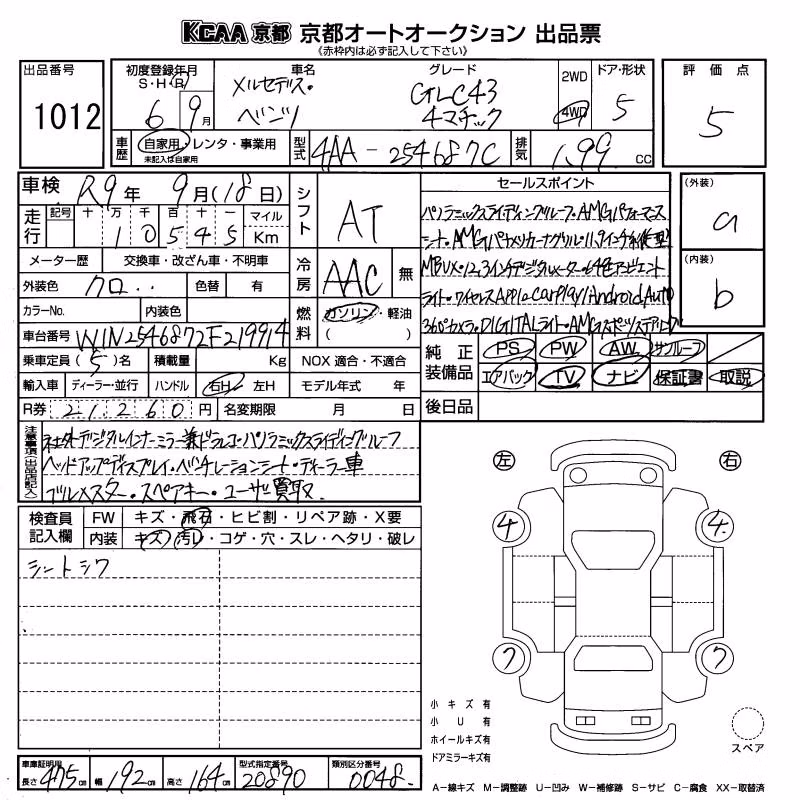 KCAA 京都 京都オートオークション 出品票
《赤枠内は必ず記入して下さい》
出品番号
1012
初度登録年月
S・H・R
6 9月
車名
メルセデス・
ベンツ
グレード
GLC43
4マチック
2WD
4WD
ドア・形状
5
評価点
5
車歴
自家用・レンタ・事業用
未記入は自家用
型式
4AA-254687C
排気
1.99 CC
車検 R9年 9月(18日)
走行
記号 十 万 千 百 十 一 マイル
1 0 5 4 5 Km
メーター歴 交換車・改ざん車・不明車
外装色 クロ・・ 色替 有
カラーNo. 内装色
車台番号 W1N2546872F219914
乗車定員(5)名 積載量 Kg
輸入車 ディーラー・並行 ハンドル 右H・左H
R券 21260円 名変期限 月 日
シフト
AT
冷房
AAC 無
燃料
ガソリン・軽油
( )
NOX 適合・不適合
モデル年式 年
セールスポイント
パノラミックスライディングルーフ・AMGパフォーマンス
シート・AMGパナメリカーナグリル・
MBUX・12.3インチデジタルメーター・64色アンビエント
ライト・ワイヤレスApple CarPlay/Android Auto
360°カメラ・DIGITALライト・AMGスポーツステアリング
(外装)
a
(内装)
b
純正装備品
PS PW AW サンルーフ
エアバック TV ナビ 保証書 取説
後日品
注意事項(出品店記入)
社外デジタルインナーミラー兼ドラレコ・パノラミックスライディングルーフ
ヘッドアップディスプレイ・ベンチレーションシート・ディーラー車
ブルメスター・スペアキー・ユーザー買取
検査員記入欄
FW キズ・飛石・ヒビ割・リペア跡・X要
内装 キズ・汚レ・コゲ・穴・スレ・ヘタリ・破レ
シートシワ
左 右
4 4
7 7
小キズ有
小U有
ホイールキズ有
ドアミラーキズ有
スペア
車庫証明用
長さ 475cm 幅 192cm 高さ 164cm
型式指定番号
20890
類別区分番号
0048
A―線キズ M―調整跡 U―凹み W―補修跡 S―サビ C―腐食 XX―取替済